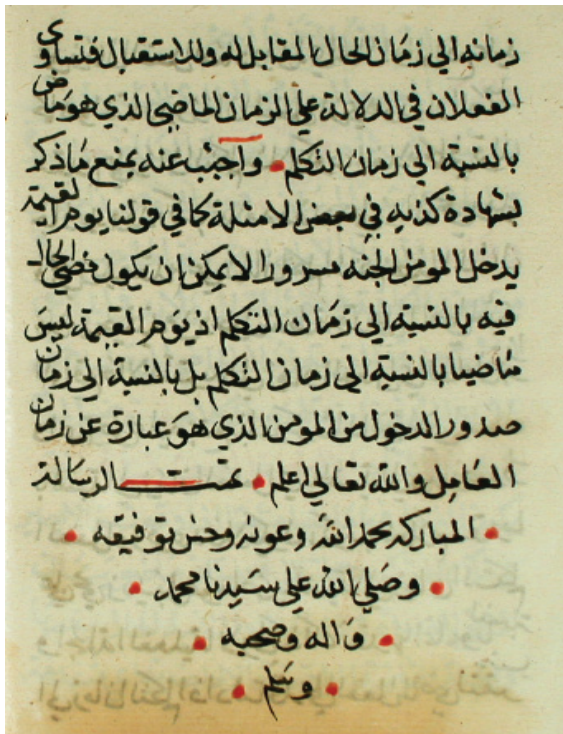 زمانه الي زمان الحال المقابل له وللاستقبال فتساوي
الفعلان في الدلالة علي الزمان الماضي الذي هو ماض
بالنسبة الي زمان التكلم واجيب عنه بمنع ما ذكر
بشهادة كذبه في بعض الامثلة كما في قولنا يوم القيمة
يدخل المومن الجنه مسرورا لا يمكن ان يكون مضي الحال
فيه بالنسبة الي زمان التكلم اذ يوم القيمة ليس
ماضيا بالنسبة الي زمان التكلم بل بالنسبة الي زمان
صدور الدخول من المومن الذي هو عبارة عن زمان
العامل والله تعالي اعلم تمت الرسالة
المباركة بحمد الله وعونه وحسن توفيقه
وصلي الله علي سيدنا محمد
واله وصحبه
وسلم